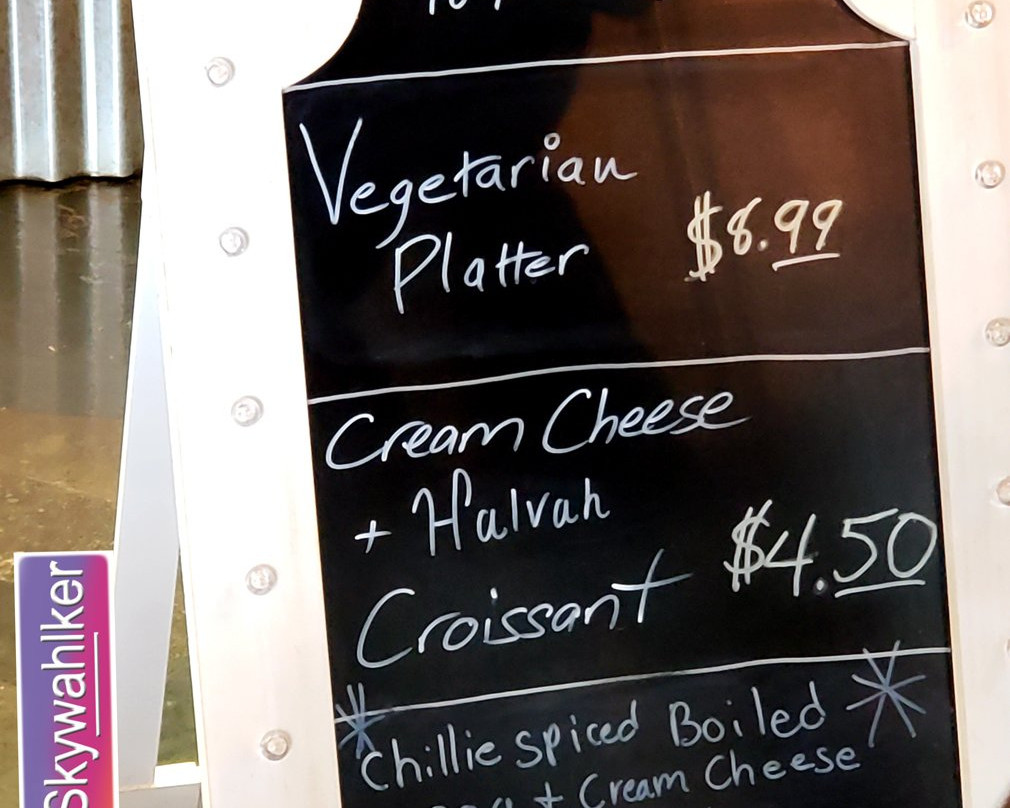 Vegetarian
Platter
$8.99
Cream Cheese
+ Halvah
Croissant
$4.50
* Chillie spiced Boiled *
+ Cream Cheese
Skywahlker